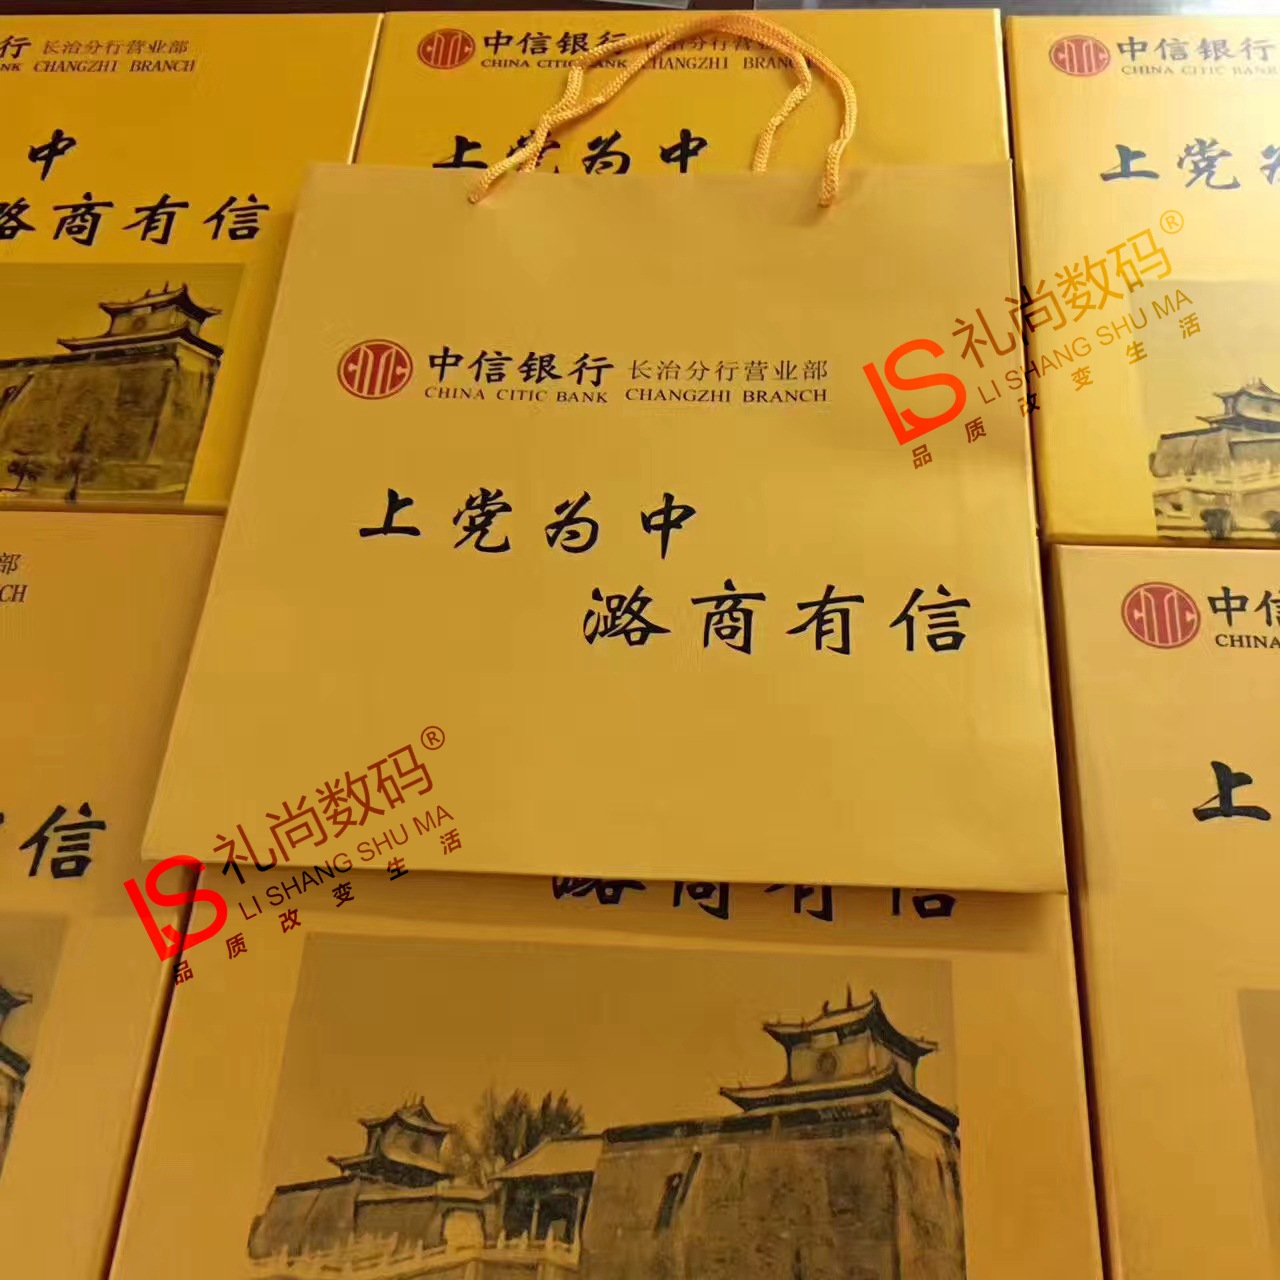 行 长治分行营业部
NK CHANGZHI BRANCH
中
潞商有信
中信银行 长治分行营业部
CHINA CITIC BANK CHANGZHI BRANCH
上党为中
中信银行
CHINA CITIC BANK
上党为
礼尚数码®
LI SHANG SHU MA
品质改变生活
中信银行 长治分行营业部
CHINA CITIC BANK CHANGZHI BRANCH
上党为中
潞商有信
部
CH
信
中信
CHINA
上
礼尚数码®
LI SHANG SHU MA
品质改变生活
潞商有信